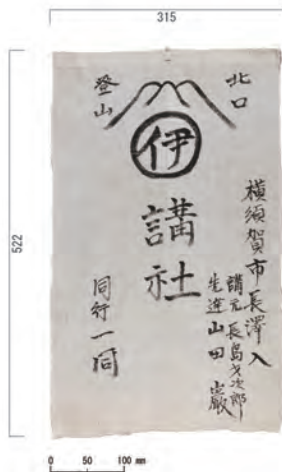 315
522
北口
登山
伊
講社
横須賀市長澤入
講元 長島才次郎
先達 山田 巌
同行一同
0 50 100 mm